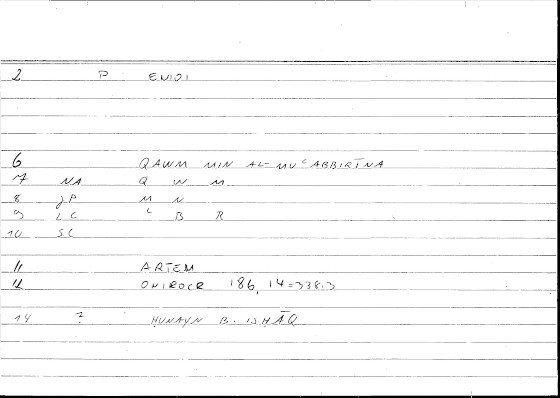 2 P ENIOI
6 QAWM MIN AL-MUʿABBIRĪNA
7 NA Q W M
8 JP M N
9 LC ʿ B R
10 SC
11 ARTEM
12 ONIROCR 186,14=338.3
14 ? HUNAYN B. ISHĀQ